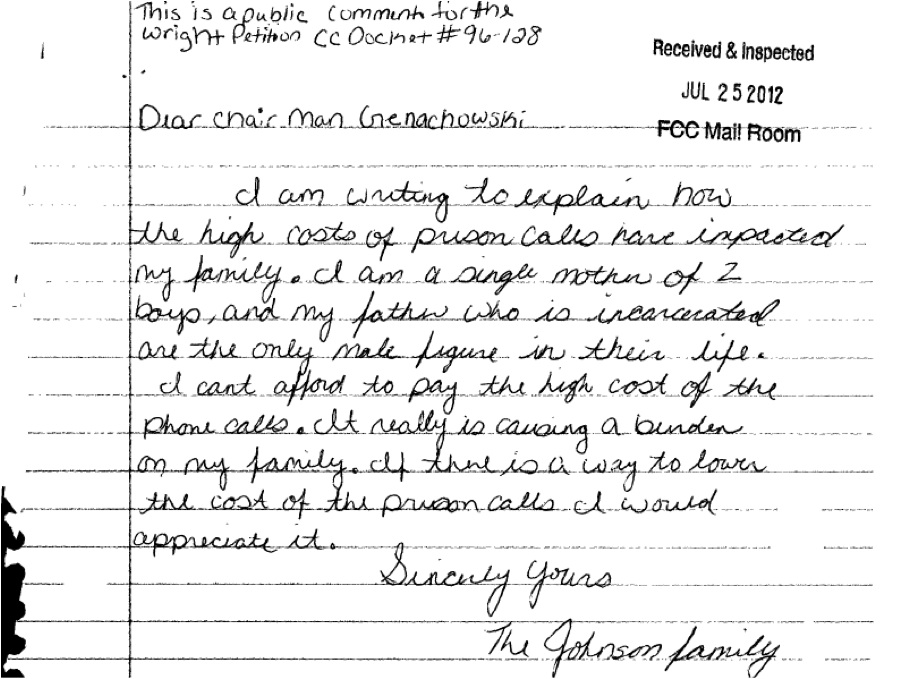 This is a public comment for the
Wright Petition CC Docket #96-128
Received & Inspected
JUL 25 2012
FCC Mail Room
Dear Chair Man Genachowski
I am writing to explain how
the high costs of prison calls have impacted
my family. I am a single mother of 2
boys, and my father who is incarcerated
are the only male figure in their life.
I cant afford to pay the high cost of the
phone calls. It really is causing a burden
on my family. If there is a way to lower
the cost of the prison calls I would
appreciate it.
Sincerly Yours
The Johnson family